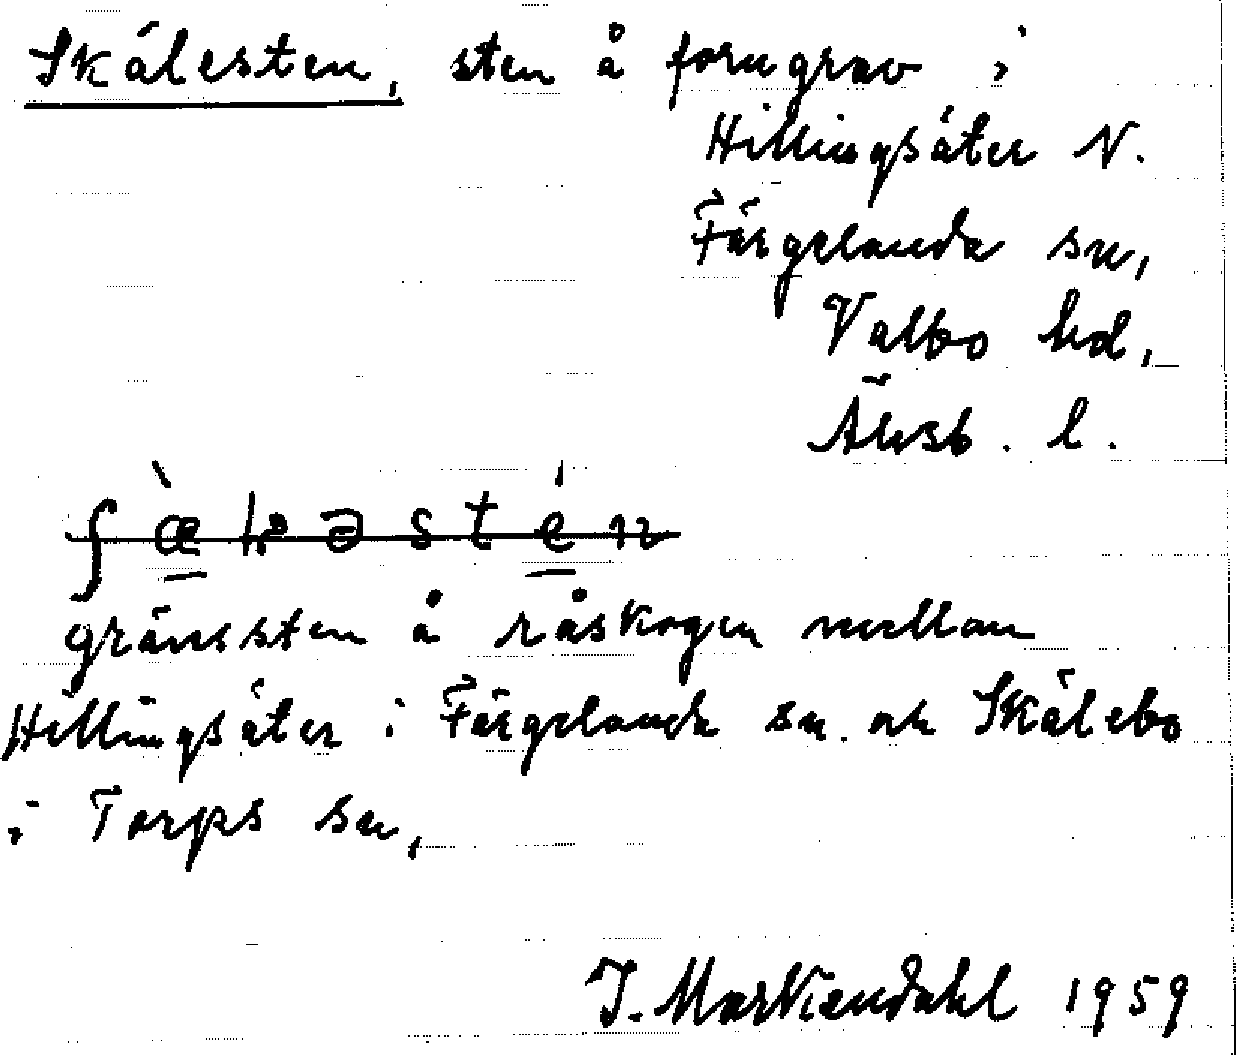 Skälesten, sten å forngrav i
Hillingsäter N.
Färgelanda sn,
Valbo hd,
Älvsb. l.
gränssten å råskogen mellan
Hillingsäter i Färgelanda sn. ok Skälebo
i Torps sn,
J. Markendahl 1959